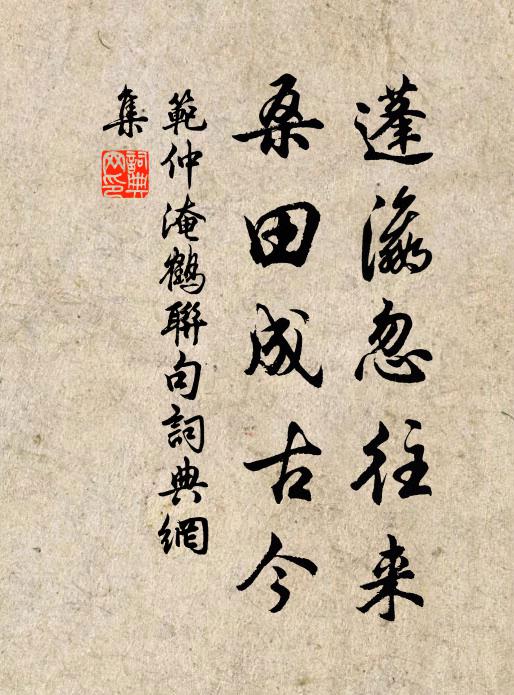 蓬瀛忽往来
桑田成古今
範仲淹鶴聯句詞典網
集
詞典
网印